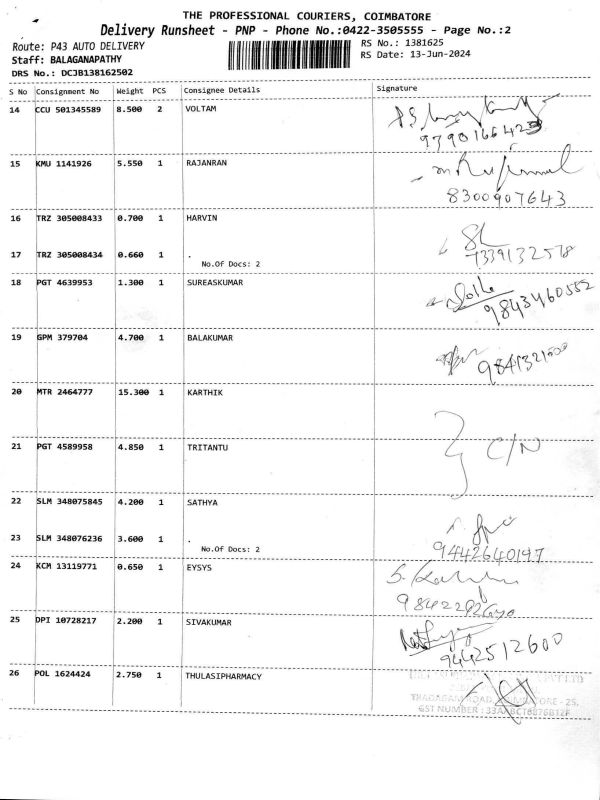 THE PROFESSIONAL COURIERS, COIMBATORE
Delivery Runsheet - PNP - Phone No.:0422-3505555 - Page No.:2
Route: P43 AUTO DELIVERY
RS No.: 1381625
Staff: BALAGANAPATHY
RS Date: 13-Jun-2024
DRS No.: DCJB138162502
S No Consignment No Weight PCS Consignee Details Signature
14 CCU 501345589 8.500 2 VOLTAM
15 KMU 1141926 5.550 1 RAJANRAN
8300907643
16 TRZ 305008433 0.700 1 HARVIN
17 TRZ 305008434 0.660 1 .
7339132578
No.Of Docs: 2
18 PGT 4639953 1.300 1 SUREASKUMAR
9843460552
19 GPM 379704 4.700 1 BALAKUMAR
20 MTR 2464777 15.300 1 KARTHIK
21 PGT 4589958 4.850 1 TRITANTU
C/N
22 SLM 348075845 4.200 1 SATHYA
23 SLM 348076236 3.600 1 .
No.Of Docs: 2
9442640197
24 KCM 13119771 0.650 1 EYSYS
25 DPI 10728217 2.200 1 SIVAKUMAR
9442512600
26 POL 1624424 2.750 1 THULASIPHARMACY